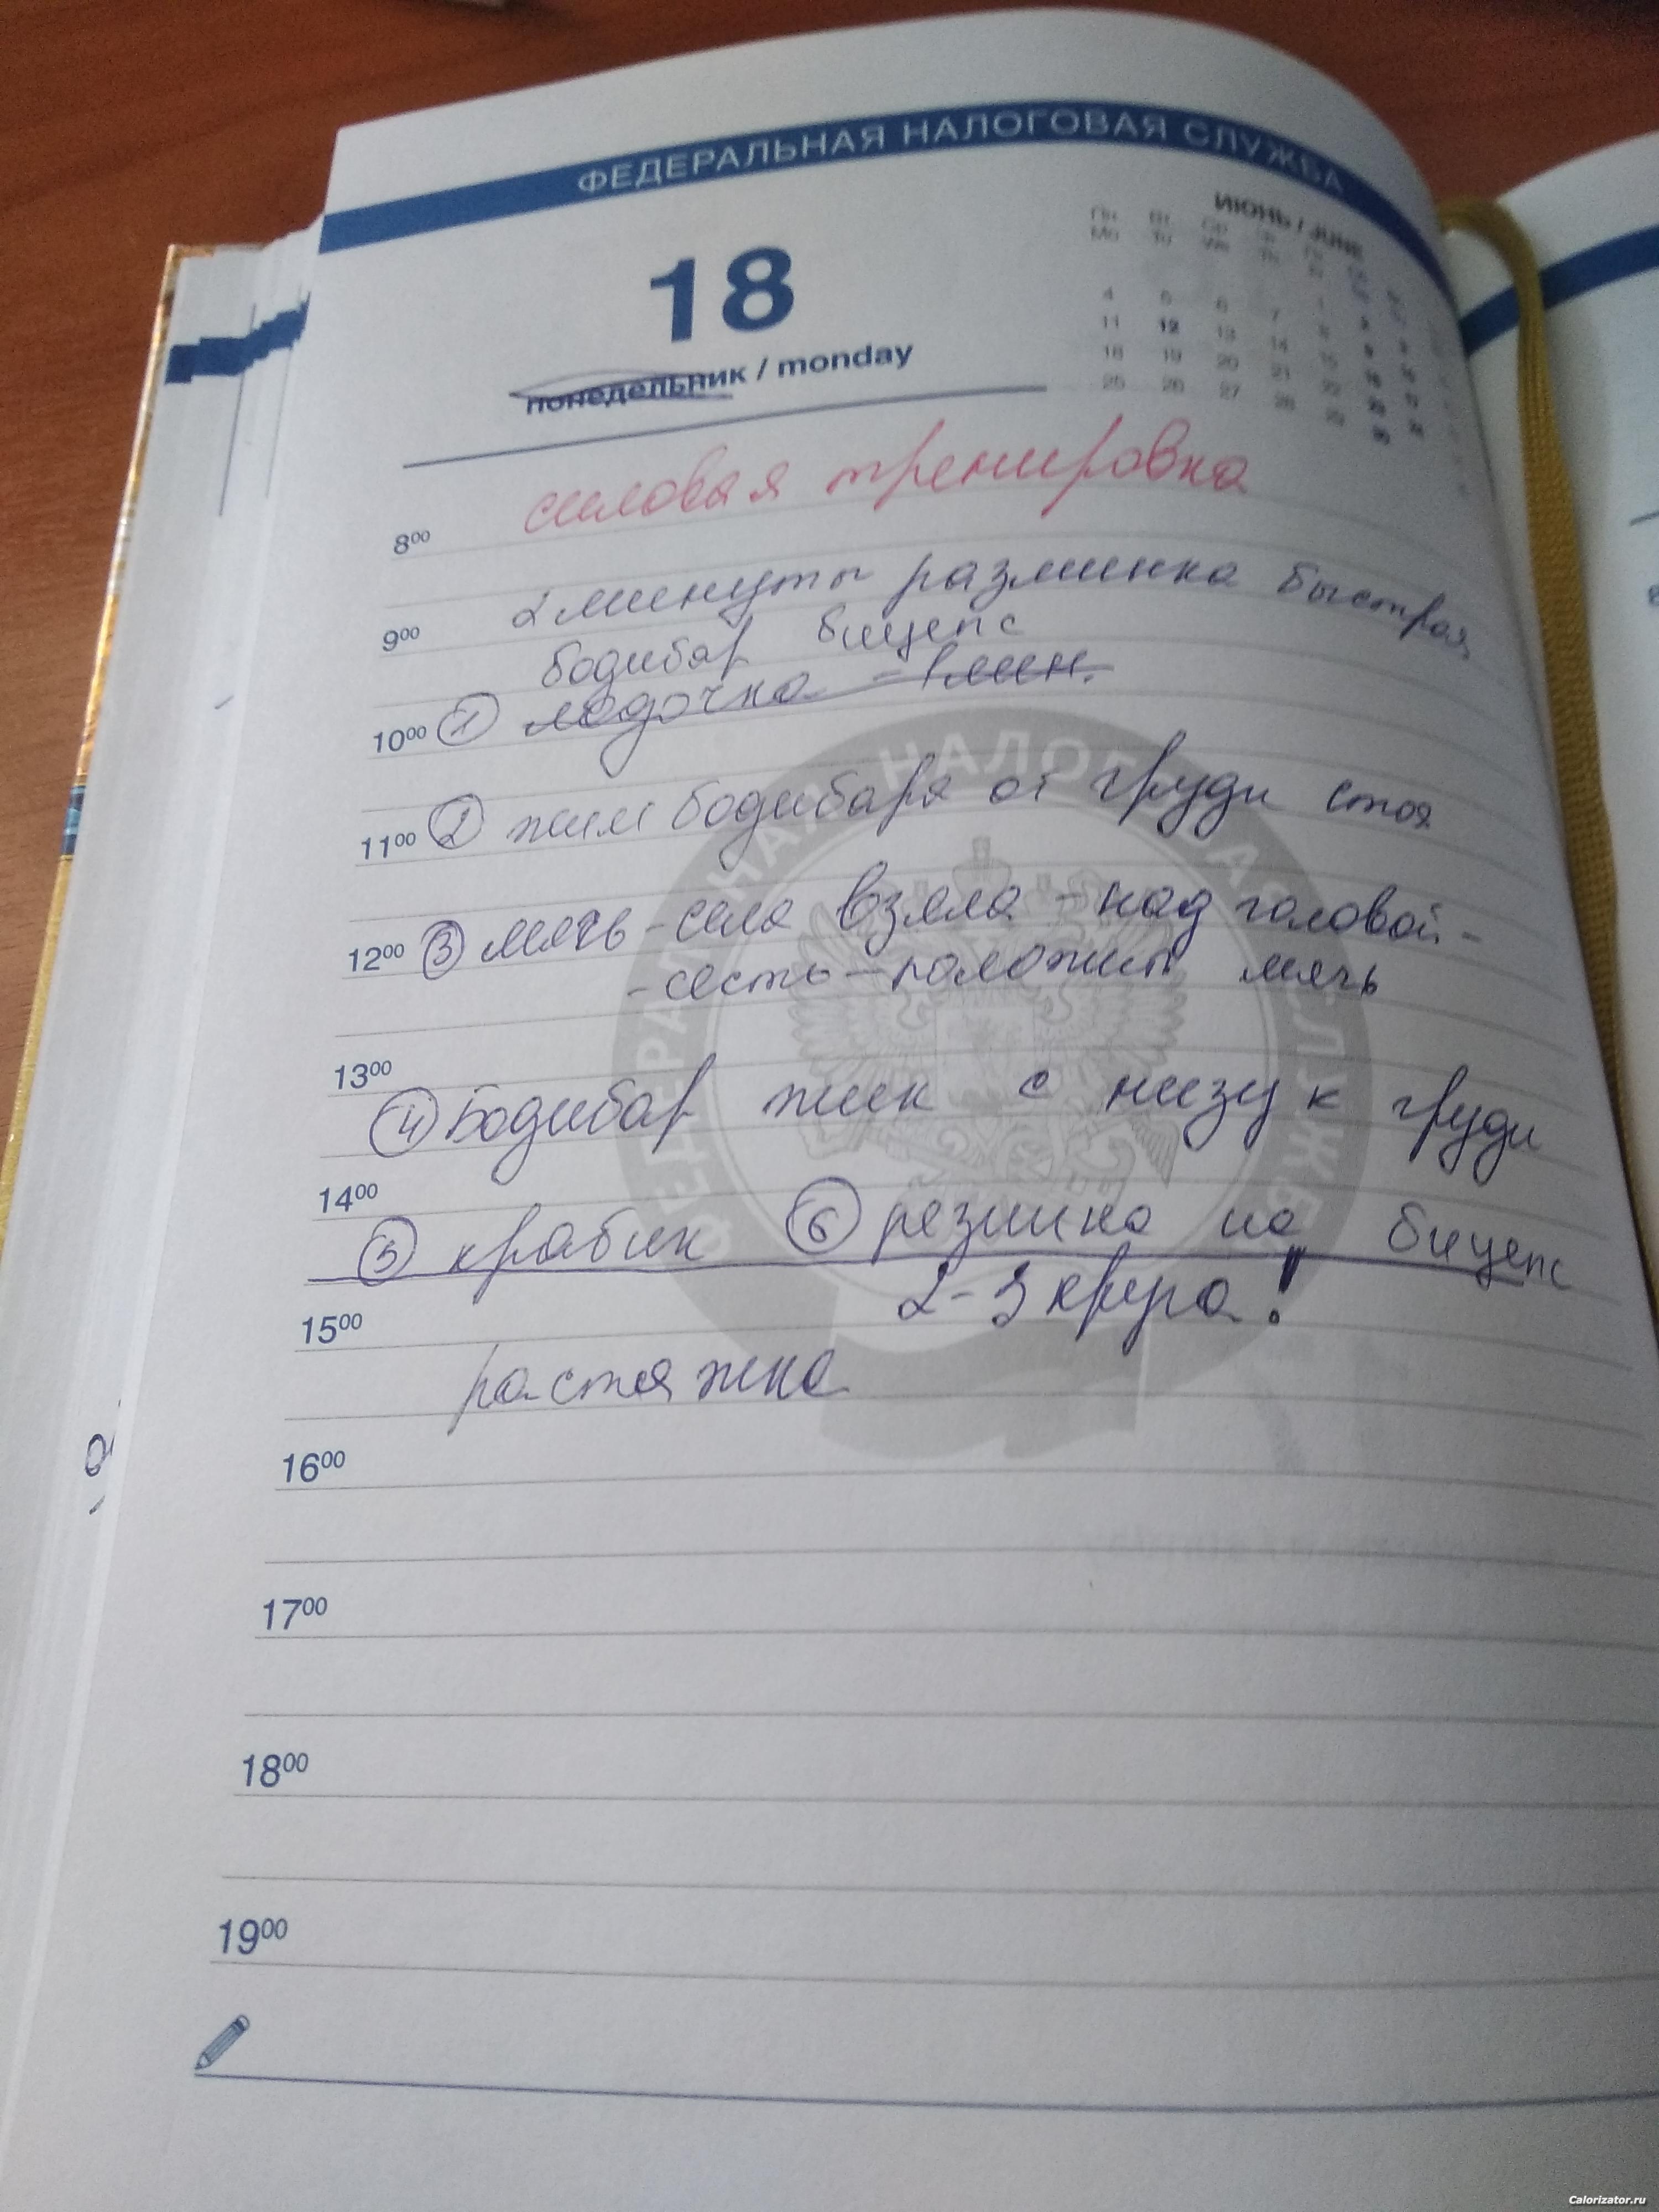 ФЕДЕРАЛЬНАЯ НАЛОГОВАЯ СЛУЖБА
18
понедельник / monday
ИЮНЬ / JUNE
Пн Вт Ср Чт Пт
Mo Tu We Th Fr
1 2 3
4 5 6 7 8 9 10
11 12 13 14 15 16 17
18 19 20 21 22 23 24
25 26 27 28 29 30
силовая тренировка
8 00
2 минуты разминка быстрая
9 00
бодибар бицепс
10 00 ① лодочка - 1 мин.
11 00 ② жим бодибара от груди стоя
12 00 ③ мячь - села взяла - над головой -
- сесть - положит мячь
13 00
④ Бодибар жим с низу к груди
14 00
⑤ крабик ⑥ резинка на бицепс
2-3 круга!
15 00
растяжка
16 00
17 00
18 00
19 00
ФЕДЕРАЛЬНАЯ НАЛОГОВАЯ СЛУЖБА
Calorizator.ru